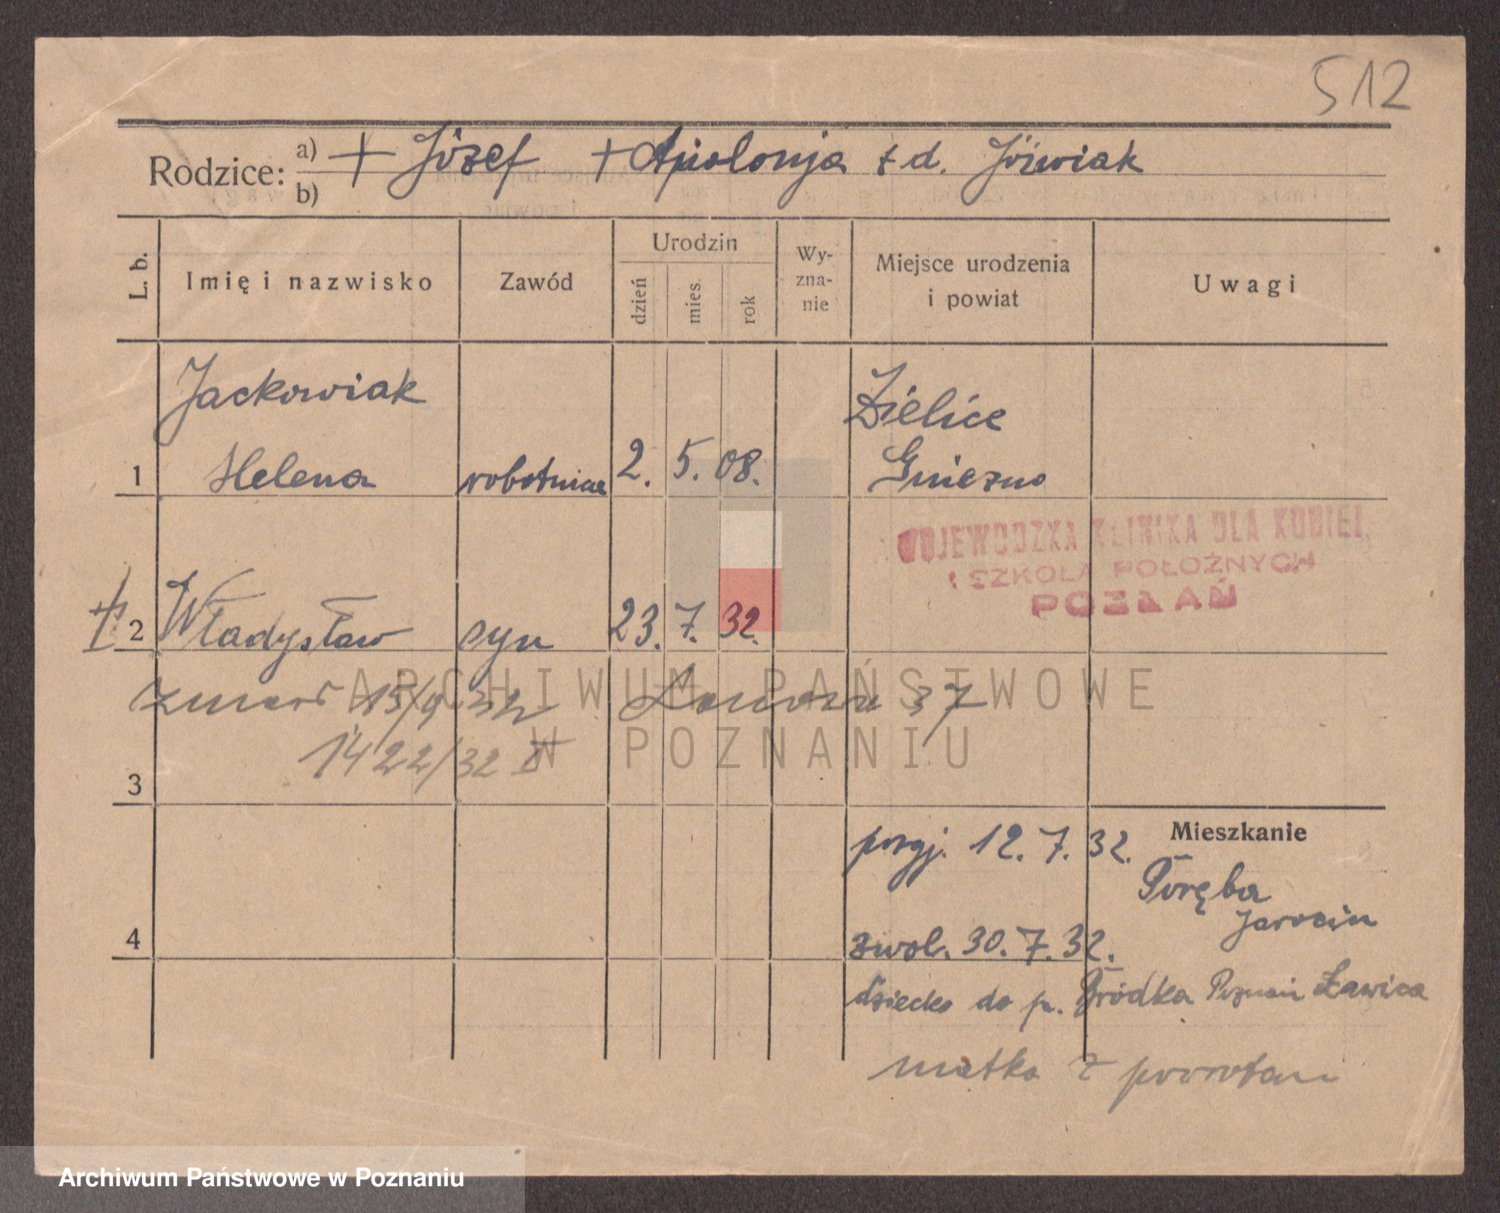 512
Rodzice: a) + Józef + Apolonja z d. Jóźwiak
b)
L. b.
Imię i nazwisko
Zawód
Urodzin
dzień
mies.
rok
Wy-
zna-
nie
Miejsce urodzenia
i powiat
Uwagi
Jackowiak Zielice
1 Helena robotnica 2. 5. 08. Gniezno
WOJEWÓDZKA KLINIKA DLA KOBIET
I SZKOŁA POŁOŻNYCH
POZNAŃ
2 Władysław syn 23. 7. 32.
zmarł 15/9 32 37
1422/32 II
3
przyj. 12. 7. 32.
Mieszkanie
Poręba
Jarocin
4 zwol. 30. 7. 32.
dziecko do p. Bródka Poznań Ławica
matka z powrotem
ARCHIWUM PAŃSTWOWE
W POZNANIU
Archiwum Państwowe w Poznaniu